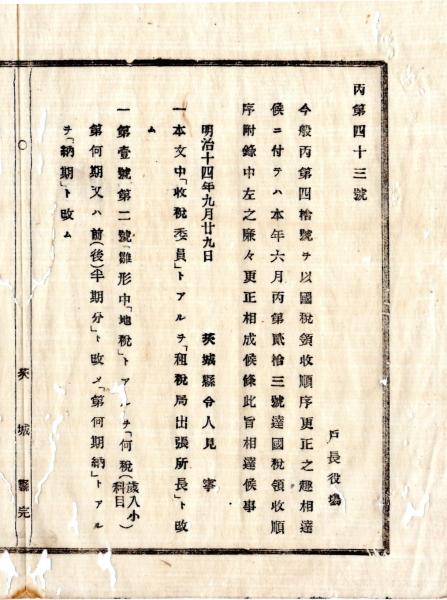 丙第四十三號
戸長役塲
今般丙第四拾號ヲ以國稅領收順序更正之趣相達
候ニ付テハ本年六月丙第貳拾三號達國稅領收順
序附錄中左之廉々更正相成候條此旨相達候事
明治十四年九月廿九日　茨城縣令人見　寧
一本文中「收稅委員」トアルヲ「租稅局出張所長」ト改
ム
一第壹號第二號「雛形中「地稅」トアルヲ「何稅(歲入小科目)
第何期又ハ前(後)半期分」ト改メ「第何期納」トアル
ヲ「納期」ト改ム
茨城縣